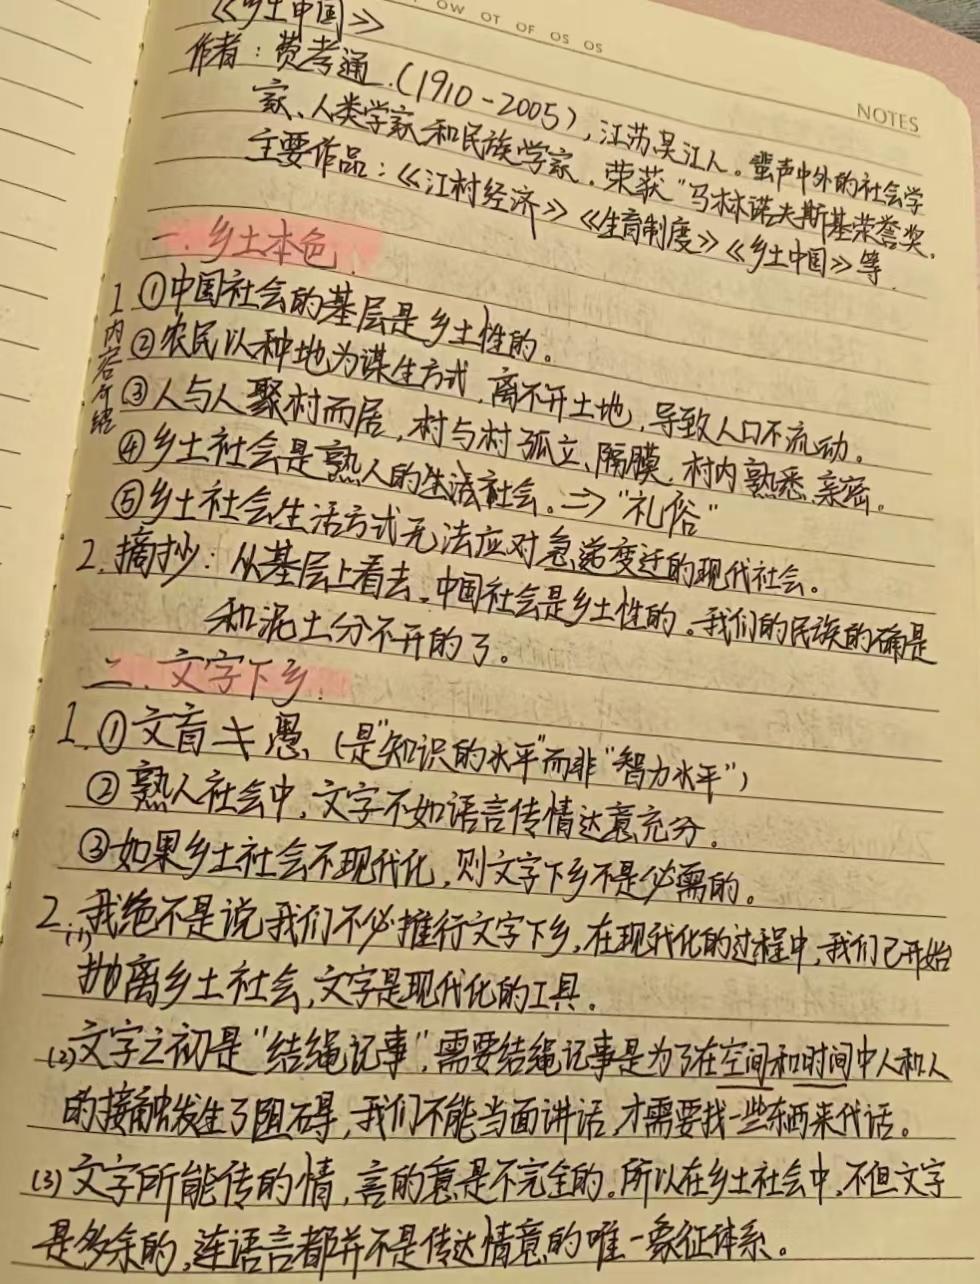 《乡土中国》
OW OT OF OS OS
NOTES
作者：费孝通.（1910-2005），江苏吴江人。蜚声中外的社会学
家、人类学家和民族学家.荣获“马林诺夫斯基荣誉奖.
主要作品：《江村经济》《生育制度》《乡土中国》等.
一.乡土本色.
1.①中国社会的基层是乡土性的。
内容介绍
②农民以种地为谋生方式,离不开土地,导致人口不流动。
③人与人聚村而居,村与村孤立、隔膜.村内熟悉亲密。
④乡土社会是熟人的生活社会。⇒“礼俗”
⑤乡土社会生活方式无法应对急遽变迁的现代社会。
2.摘抄：从基层上看去,中国社会是乡土性的。我们的民族的确是
和泥土分不开的了。
二.文字下乡.
1.①文盲≠愚（是“知识的水平”而非“智力水平”）
②熟人社会中,文字不如语言传情达意充分.
③如果乡土社会不现代化,则文字下乡不是必需的。
2.(1)我绝不是说我们不必推行文字下乡,在现代化的过程中,我们已开始
抛离乡土社会,文字是现代化的工具.
(2)文字之初是“结绳记事”,需要结绳记事是为了在空间和时间中人和人
的接触发生了阻碍,我们不能当面讲话,才需要找一些东西来代话。
(3)文字所能传的情,言的意是不完全的。所以在乡土社会中,不但文字
是多余的,连语言都并不是传达情意的唯一象征体系。